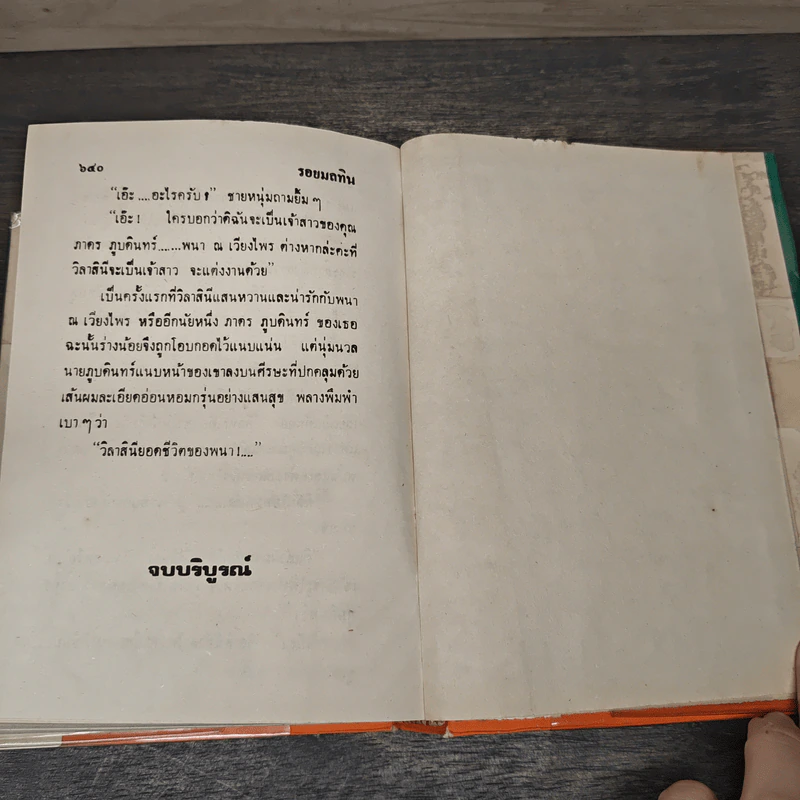 ๖๕๐
รอยมลทิน
“เอ๊ะ ....อะไรครับ ?” ชายหนุ่มถามยิ้ม ๆ
“เอ๊ะ ! ใครบอกว่าดิฉันจะเป็นเจ้าสาวของคุณ
ภาคร ภูบดินทร์.......พนา ณ เวียงไพร ต่างหากล่ะคะที่
วิลาสินีจะเป็นเจ้าสาว จะแต่งงานด้วย”
เป็นครั้งแรกที่วิลาสินีแสนหวานและน่ารักกับพนา
ณ เวียงไพร หรืออีกนัยหนึ่ง ภาคร ภูบดินทร์ ของเธอ
ฉะนั้นร่างน้อยจึงถูกโอบกอดไว้แนบแน่น แต่นุ่มนวล
นายภูบดินทร์แนบหน้าของเขาลงบนศีรษะที่ปกคลุมด้วย
เส้นผมละเอียดอ่อนหอมกรุ่นอย่างแสนสุข พลางพึมพำ
เบา ๆ ว่า
“วิลาสินียอดชีวิตของพนา !....”
จบบริบูรณ์